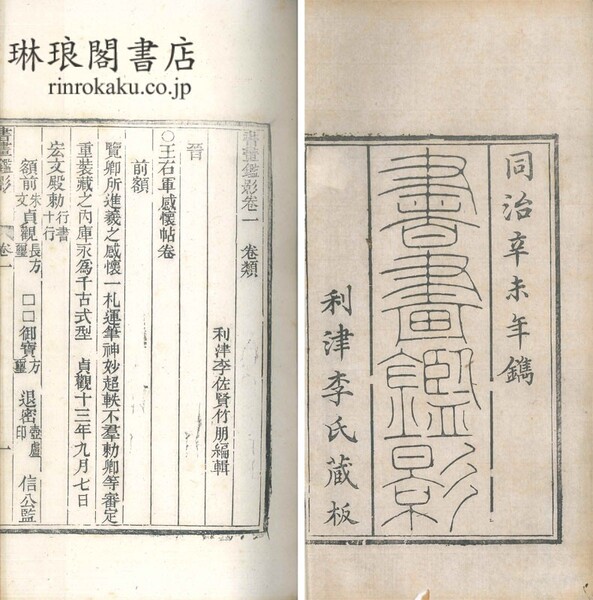 琳琅閣書店
rinrokaku.co.jp
同治辛未年鐫
書畫鑑影
利津李氏藏板
書畫鑑影卷一　卷類
利津李佐賢竹朋編輯
晉
○王右軍感懷帖卷
前額
覽卿所進羲之感懷一札運筆神妙超軼不羣勅卿等審定
重裝藏之內庫永為千古式型　貞觀十三年九月七日
宏文殿勅行書十行
額前朱文貞觀長方璽　□□御寶方璽　退密壺盧印　信公監
書畫鑑影　卷一　一